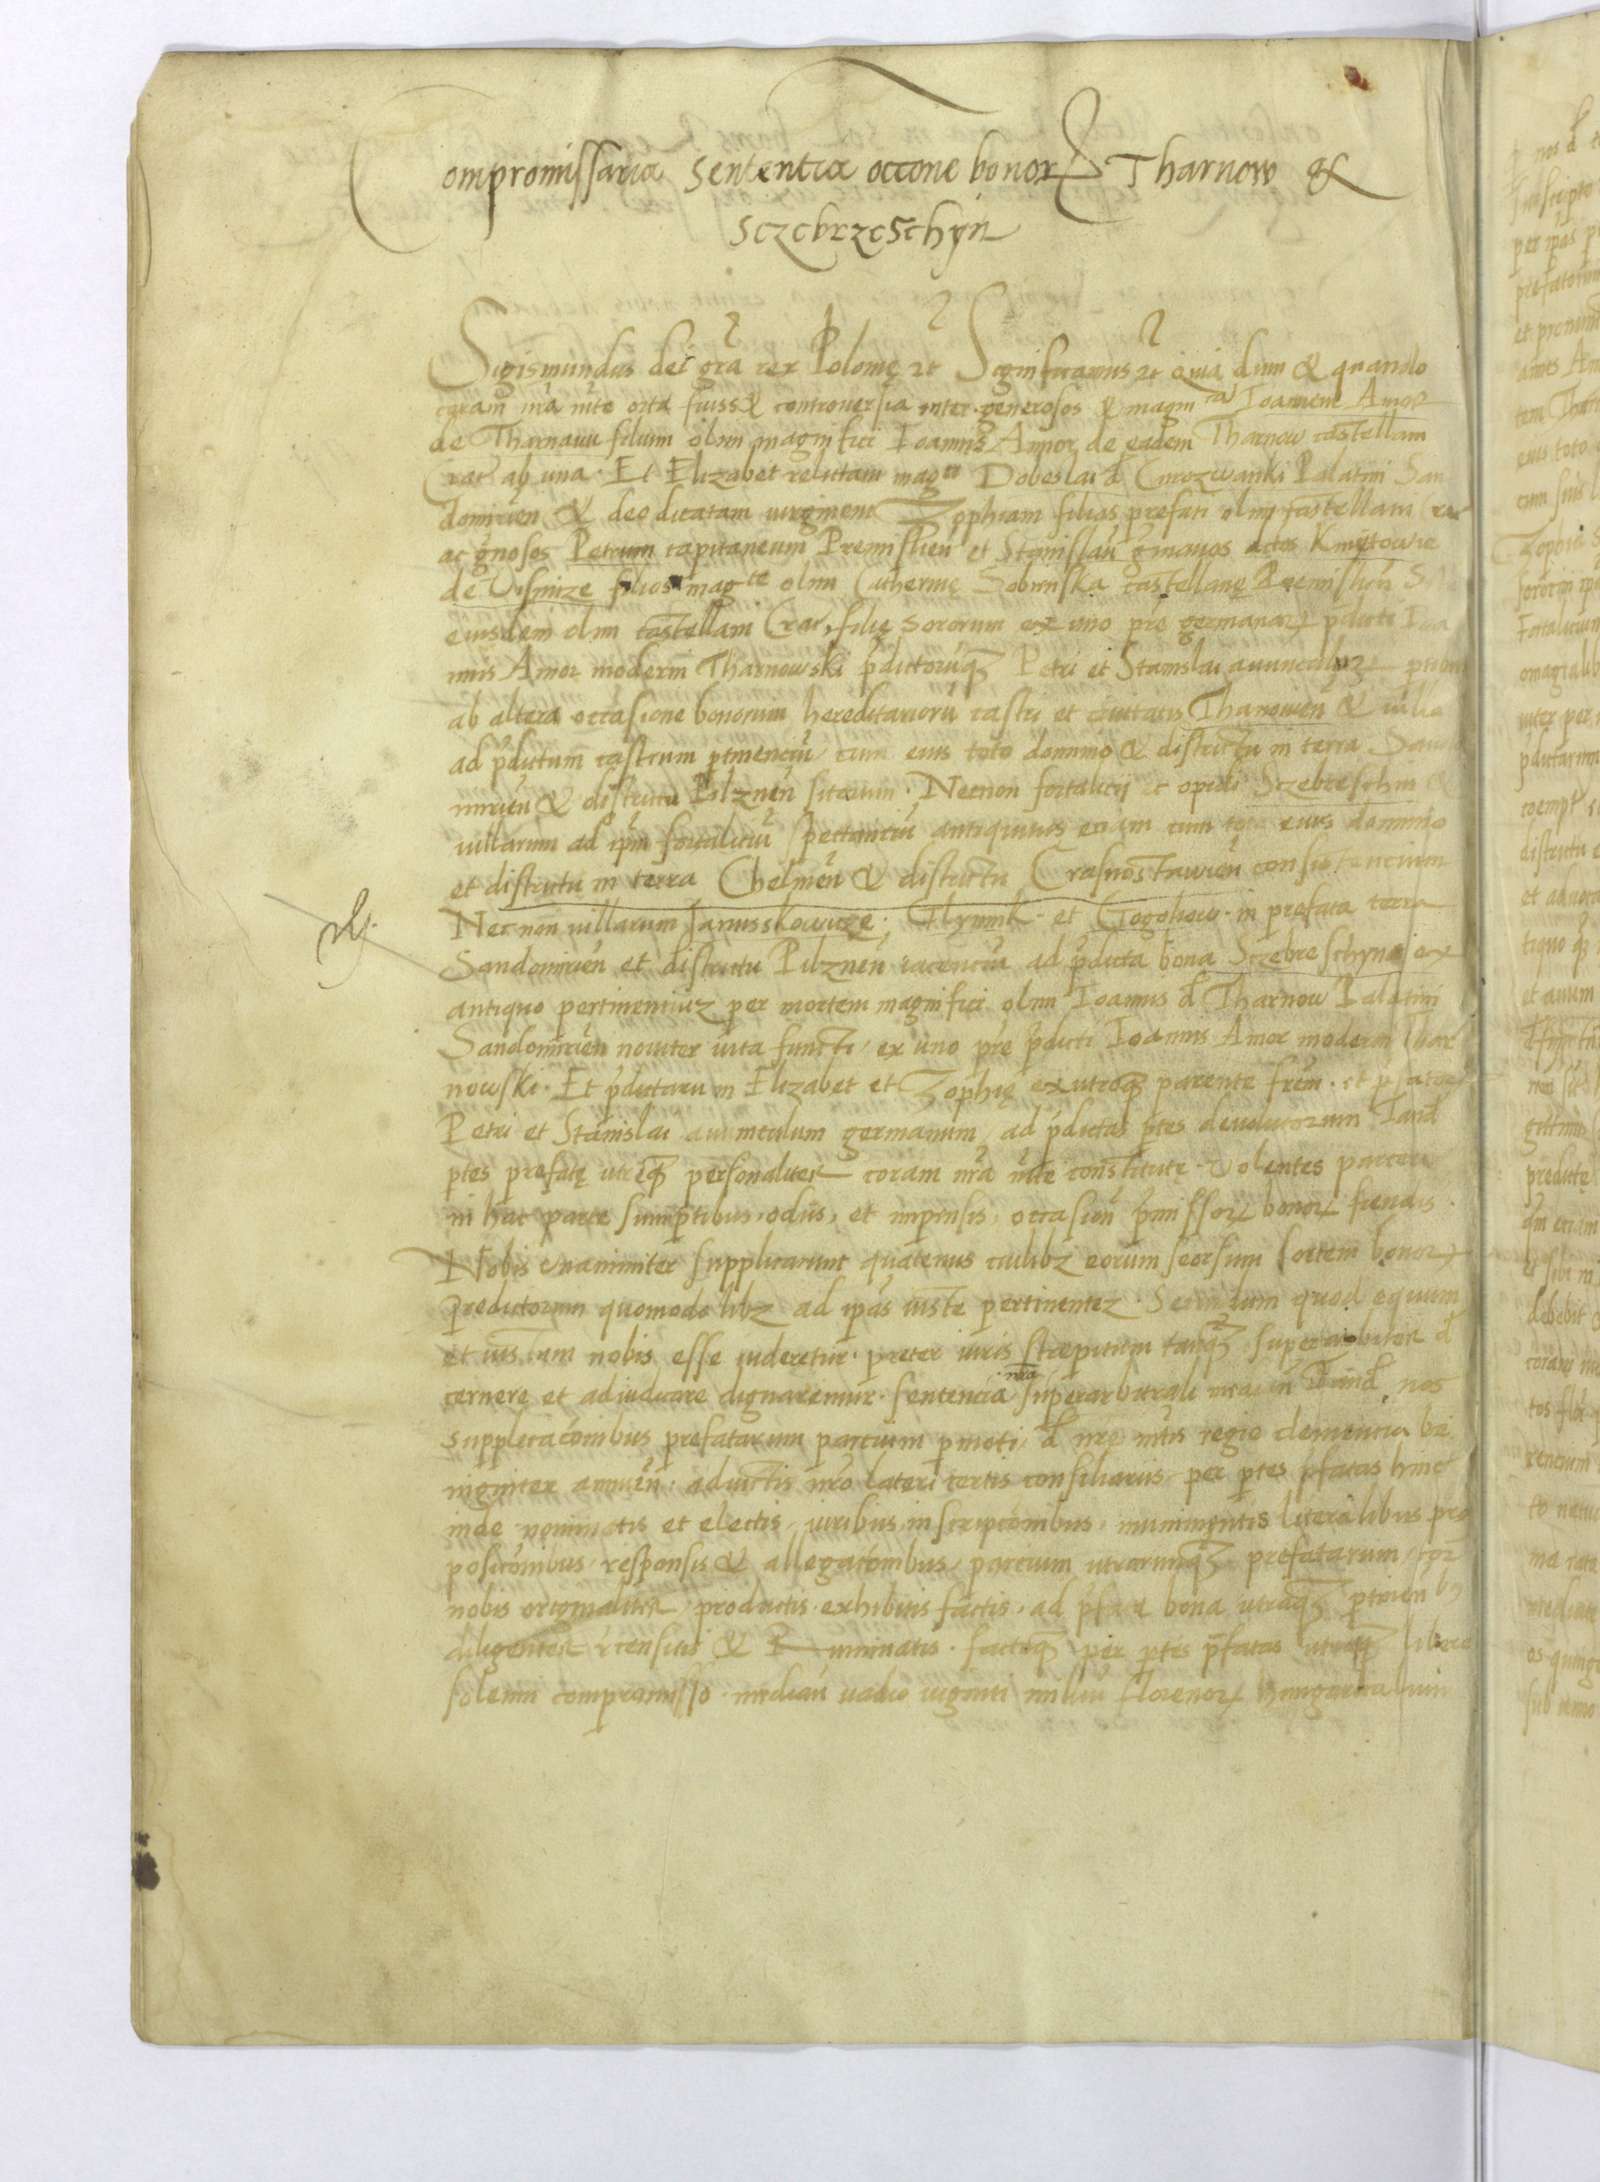 Compromissaria Sententia occone bonor Tharnow &
Sczebrzeschyn
Sigismundus dei gra rex Polonię zc Significamus zc Quia dum & quando
coram nra mte orta fuiss& controversia inter generosos & magnicu Ioannem Amor
de Tharnow filium olim magnifici Ioannis Amor de eadem Tharnow castellani
Crac ab una. Et Elizabet relictam magci Dobeslai d Curozwanki Palatini San
domirien & deo dicatam virginem Zophiam filias prefati olim castellani Crac
ac gnosos Petrum capitaneum Premislien et Stanislau gmanos dictos Kmytowie
de Visnize filios magce olim Catherinę Sobinska castellanę Premislien
eiusdem olim castellani Crac, filię sororum ex uno pre germanar pdicti Ioa
nnis Amor moderni Tharnowski pdictorūq Petri et Stanislai avunculi ptibus
ab altera occasione bonorum hereditariorū castri et civitatis Thanowien & villa
ad pdictum castrum ptinenciū cum eius toto dominio & districtu in terra Sando
mirien & districtu Pilznen sitarum. Necnon fortalicij ac opidi Sczebreschin &
villarum ad ipm fortaliciū spectanciū antiquitus eciam cum toto eius dominio
et districtu in terra Chelmen & districtu Crasnostawien consistencium
Nec non villarum Janusskowicze, Glynnik et Gogolow in prefata terra
Sandomirien et districtu Pilznen iacenciū ad pdicta bona Sczebreschyn ex
antiquo pertinentiuz per mortem magnifici olim Ioannis d Tharnow Palatini
Sandomirien noviter vita functi, ex uno pre pdicti Ioannis Amor moderni Thar
nowski. Et pdictarum Elizabet et Zophię ex utroq parente frem. et pfator
Petri et Stanislai avunculum germanum ad pdictas ptes devolutorum Tand
ptes prefatę utreq personaliter coram nra mte constitutę. Volentes parcere
in hac parte sumptibus, odiis, et impensis, occasion pmissor bonor fiendis.
Nobis unanimiter supplicarunt quatenus cuilibz eorum seorsum sortem bonor
predictorum quomodo libz ad ipas iuste pertinentez. Secundum quod equum
et iustum nobis esse videretur. preter iuris strepitum tanq superarbitor d
cernere et adiudicare dignaremur. sentencia nra superarbitrali
supplicacombus prefatarum parcium pmoti, d nrę mtis regię clemencia be
nigniter adiunctis nro lateri certis consiliariis per ptes pfatas hinc
inde nominatis et electis, iuribus inscripcombus. munimentis literalibus pro
posicombus, responsis & allegacombus parcium utrarumq prefatarum, cor
nobis productis exhibitis factis, ad pfata bona utraq ptinen
diligenter & Ruminatis. factoq per ptes pfatas utrasq libere
solenni compromisso. median vadio viginti miliū florenor hungarica